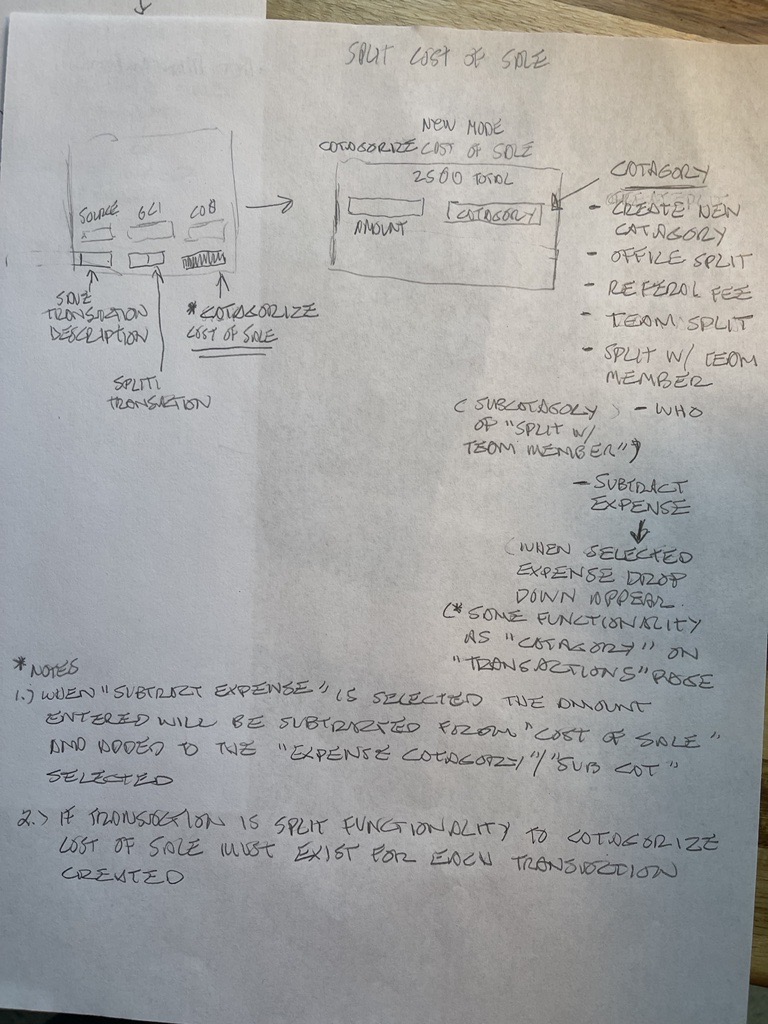 SPLIT COST OF SALE
NEW MODE
COTAGORIZE COST OF SALE
2500 TOTAL
AMOUNT
CATAGORY
SOURCE
GCI
COS
SAVE
TRANSACTION
DESCRIPTION
SPLIT
TRANSACTION
*COTAGORIZE
COST OF SALE
COTAGORY
- CREATE NEW
CATAGORY
- OFFICE SPLIT
- REFERAL FEE
- TEAM SPLIT
- SPLIT W/ TEAM
MEMBER
(SUBCATAGORY) - WHO
OF "SPLIT W/
TEAM MEMBER")
- SUBTRACT
EXPENSE
(WHEN SELECTED
EXPENSE DROP
DOWN APPEAR.
(*SAME FUNCTIONALITY
AS "CATAGORY" ON
"TRANSACTIONS" PAGE
*NOTES
1.) WHEN "SUBTRACT EXPENSE" IS SELECTED THE AMOUNT
ENTERED WILL BE SUBTRACTED FROM "COST OF SALE"
AND ADDED TO THE "EXPENSE COTAGORY"/"SUB CAT"
SELECTED
2.) IF TRANSACTION IS SPLIT FUNCTIONALITY TO COTAGORIZE
COST OF SALE MUST EXIST FOR EACH TRANSACTION
CREATED